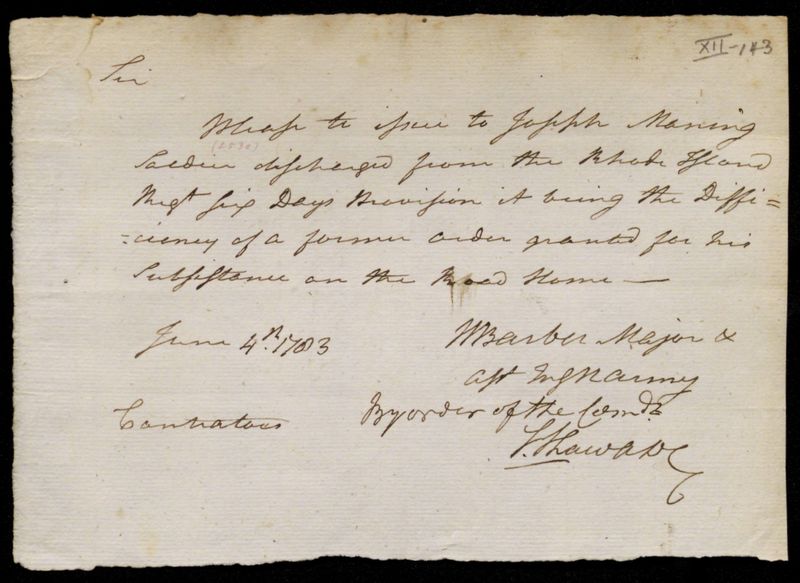 XII-143
Sir
Please to issue to Joseph Maning
(253a)
Soldier discharged from the Rhode Island
Regt six Days Provision it being the Diffi=
=ciency of a former order granted for his
Subsistance on the Road Home —
June 4th. 1783
WBarber Major &
asst Army
Contrators
By order of the Comdt